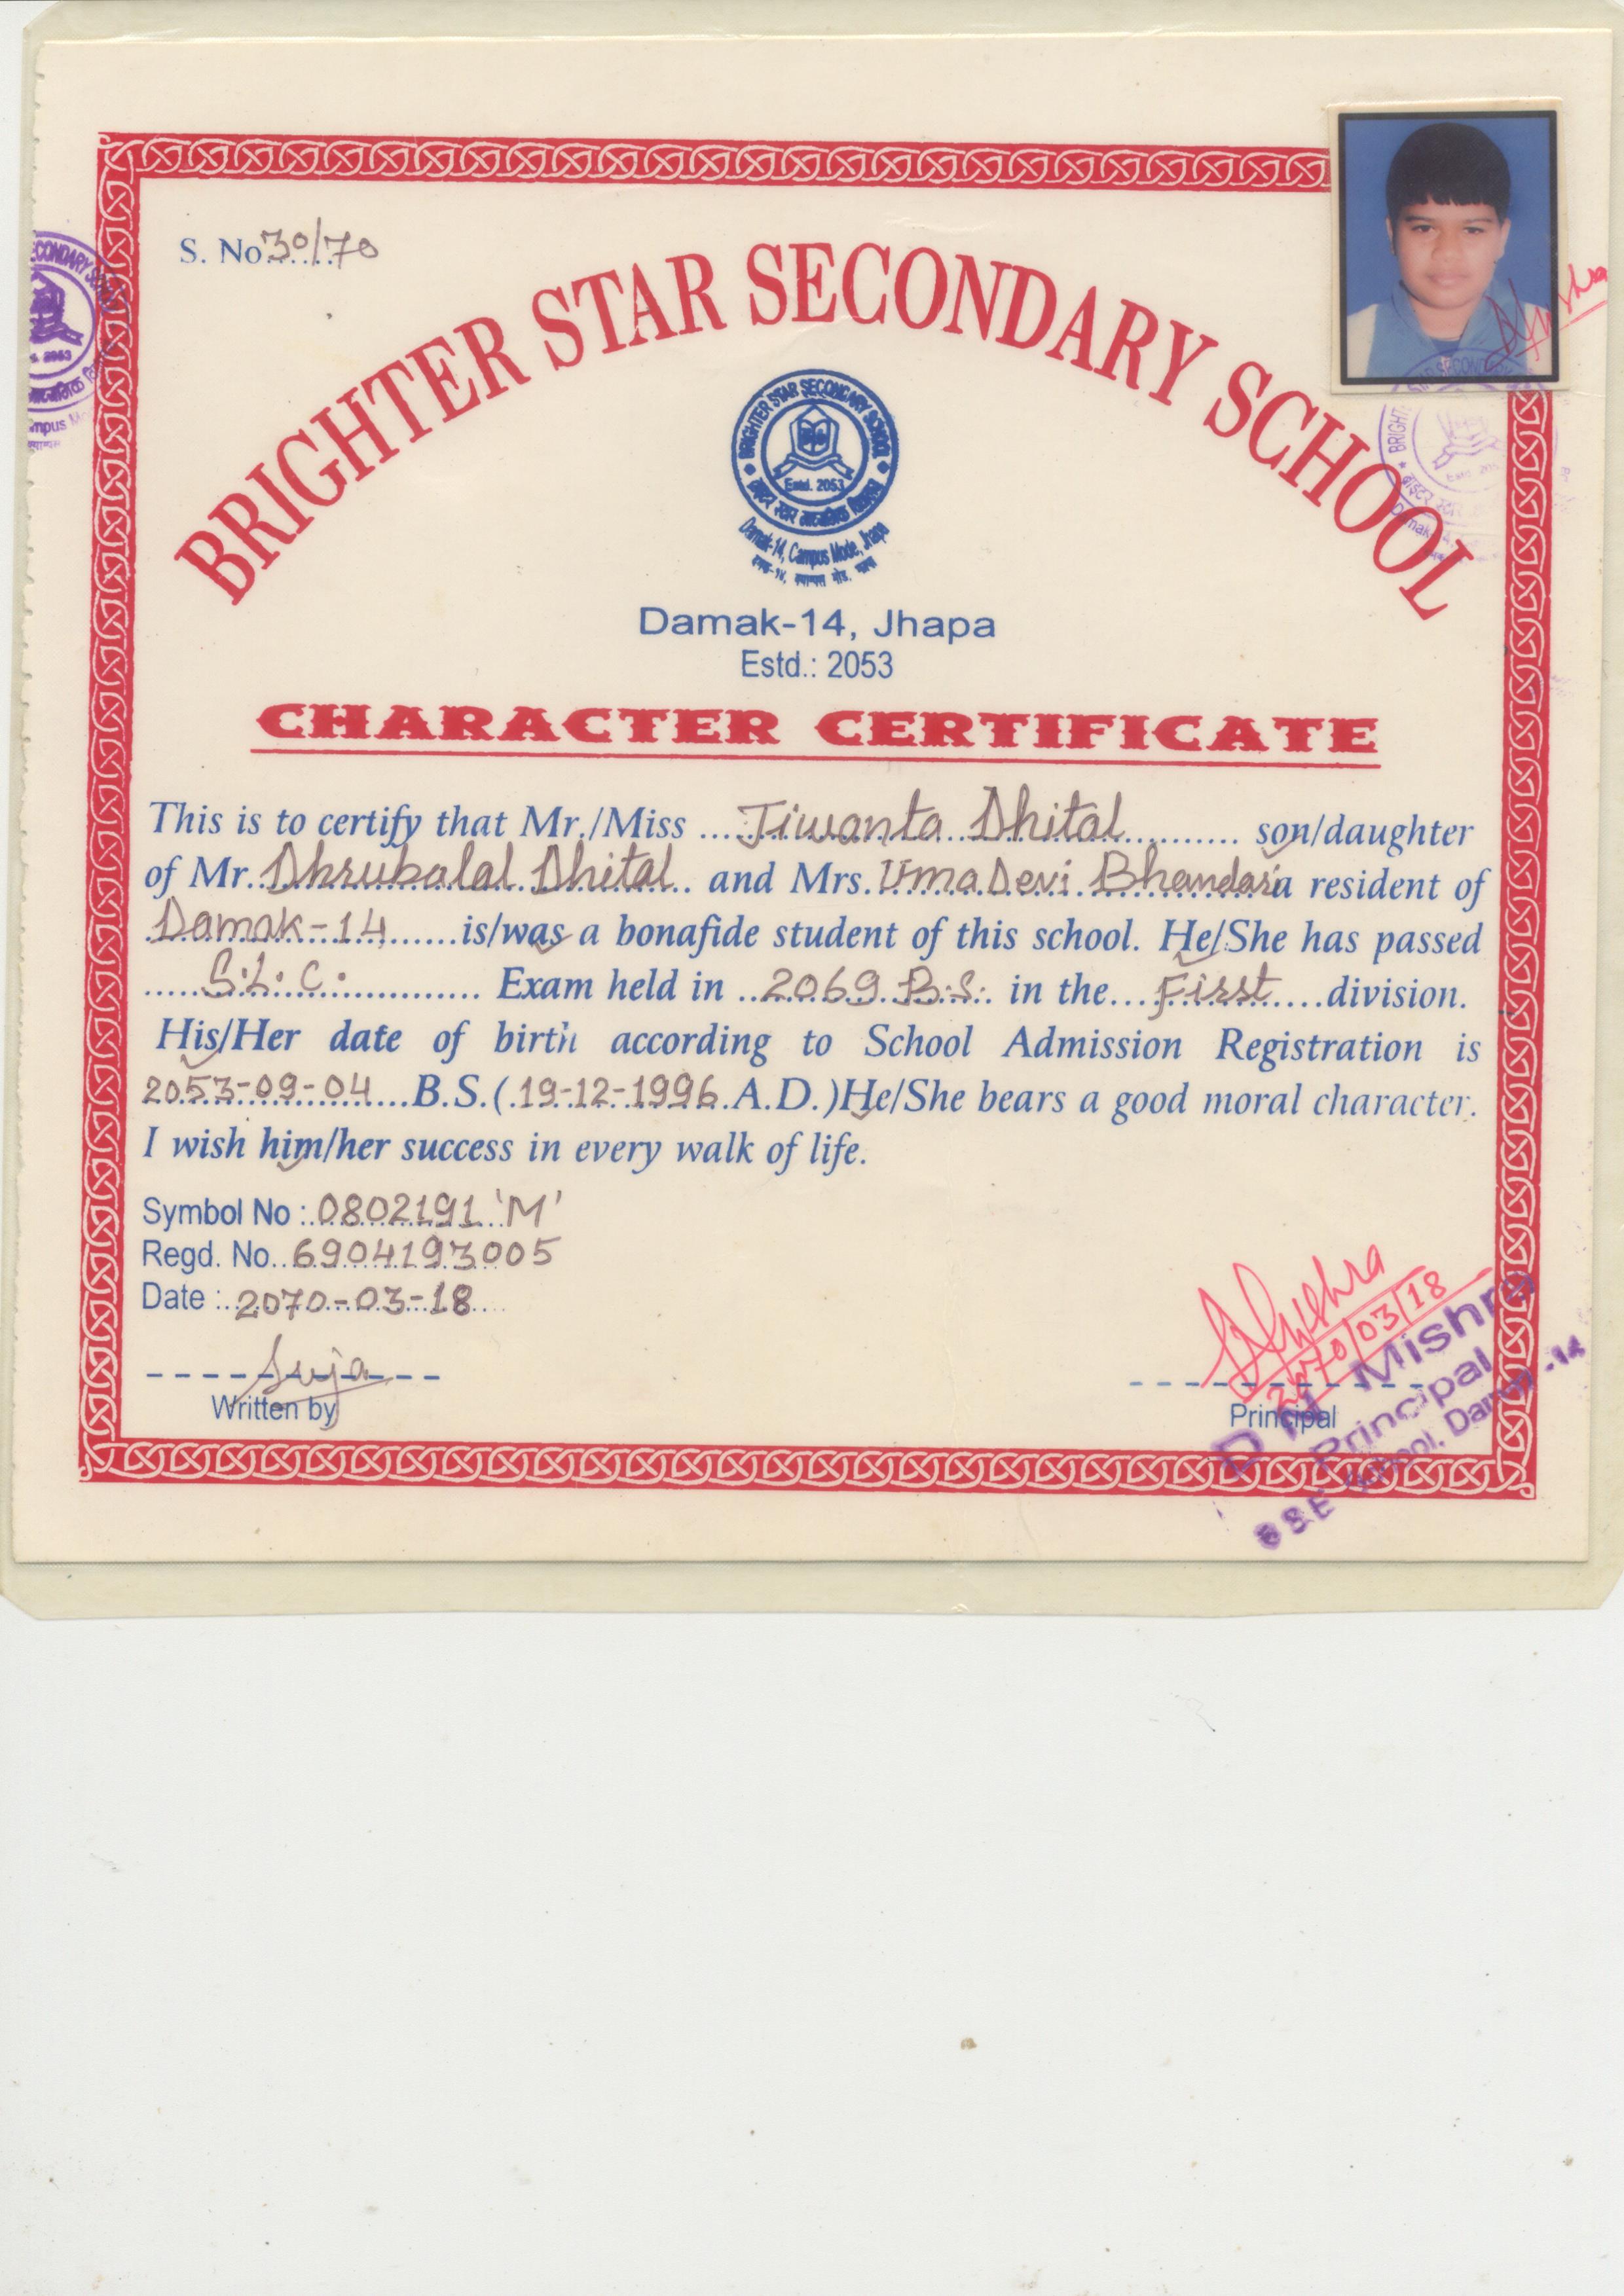 S. No. 30/70
BRIGHTER STAR SECONDARY SCHOOL
BRIGHTER STAR SECONDARY SCHOOL
Estd. 2053
Damak-14, Campus Mode, Jhapa
Damak-14, Jhapa
Estd.: 2053
CHARACTER CERTIFICATE
This is to certify that Mr./Miss ....Jiwanta Dhital.......... son/daughter
of Mr. Dhrubalal Dhital.. and Mrs. Uma Devi Bhandari a resident of
Damak-14......is/was a bonafide student of this school. He/She has passed
.....S.L.C............. Exam held in ..2069 B.S.. in the....First.....division.
His/Her date of birth according to School Admission Registration is
2053-09-04...B.S.(.19-12-1996.A.D.)He/She bears a good moral character.
I wish him/her success in every walk of life.
Symbol No :.0802191 'M'
Regd. No..6904193005
Date :..2070-03-18....
Written by
2070/03/18
Principal
D N Mishra
Principal
School, Damak-14